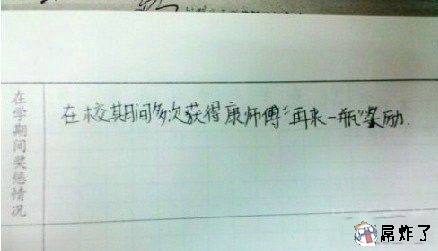 在学期间奖惩情况
在校其期间多次获得康师傅“再来一瓶”奖励.
屌炸了